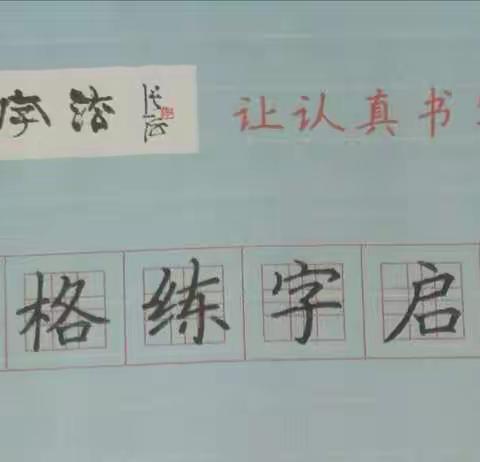 字法
让认真书
格练字启